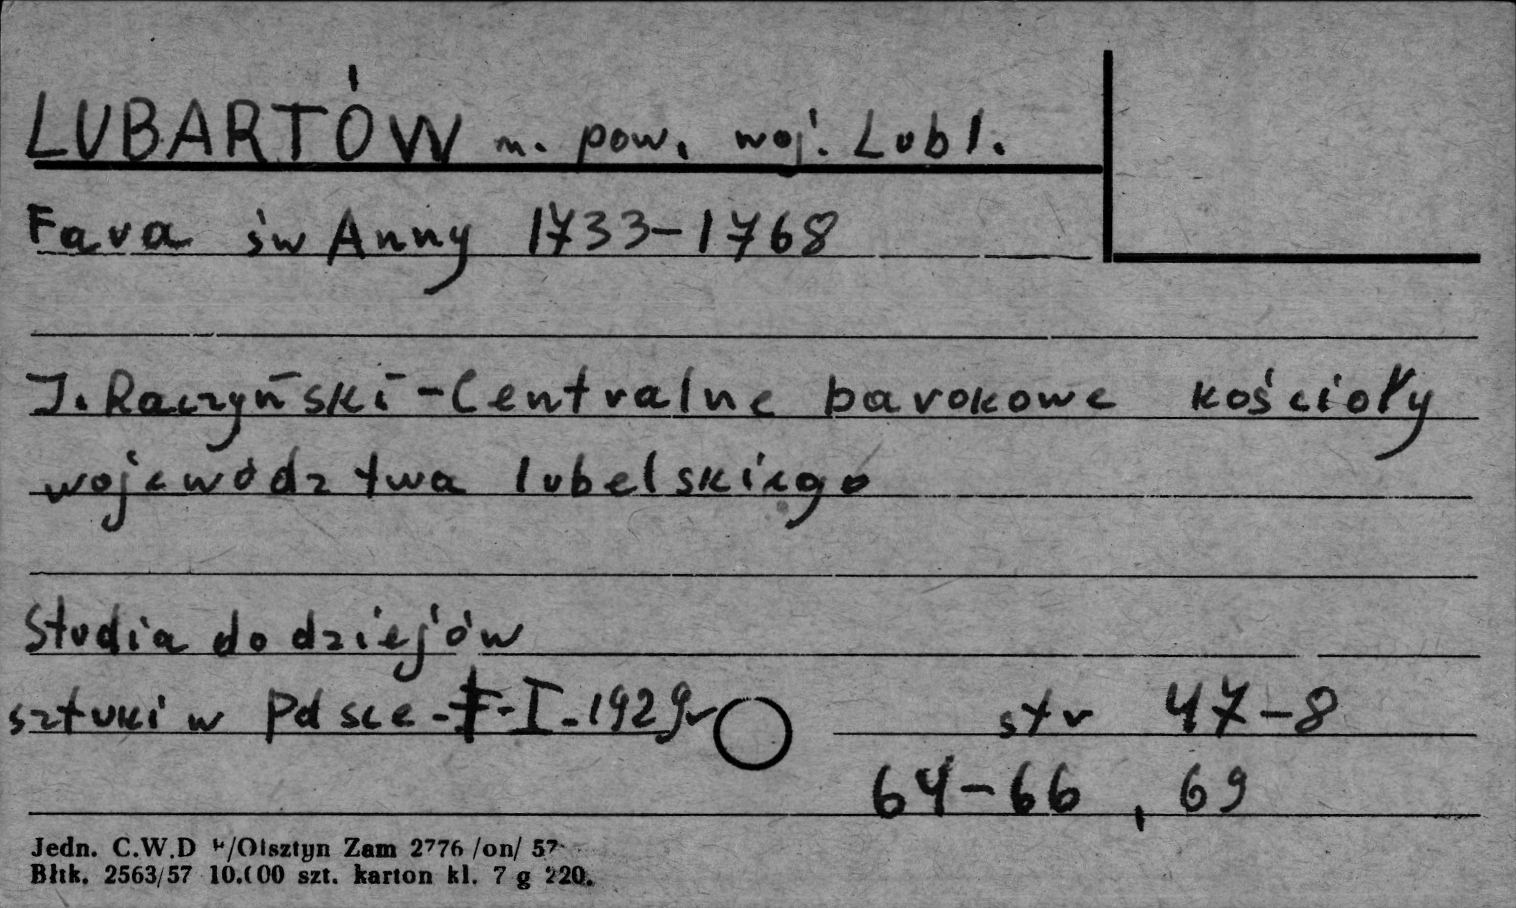 LUBARTÓW m. pow. woj. Lubl.
Fara św Anny 1733-1768
J. Raczyński - Centralne barokowe kościoły
województwa lubelskiego
Studia do dziejów
sztuki w Polsce - I - 1929r str 47-8
64-66, 69
Jedn. C.W.D /Olsztyn Zam 2776 /on/ 57
Błtk. 2563/57 10.000 szt. karton kl. 7 g 220.